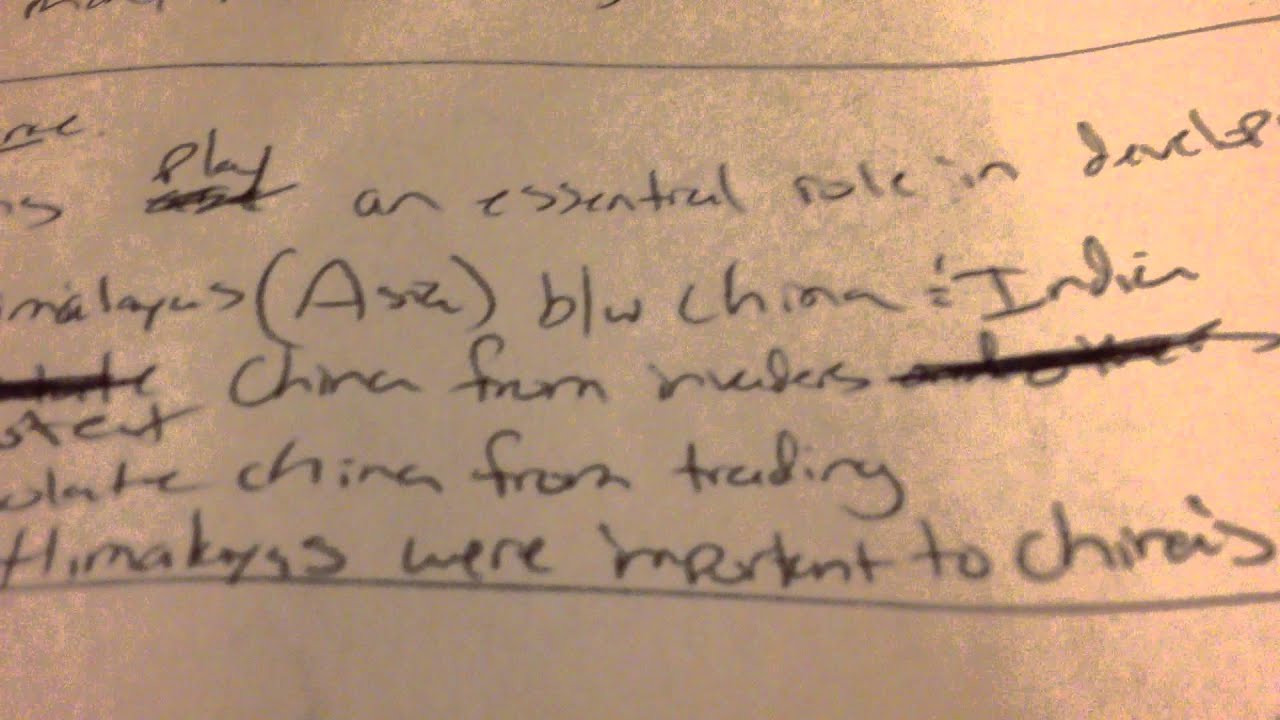 play
an essential role in develop
(Asia) b/w China & India
China from invaders
China from trading
Himalayas were important to China's